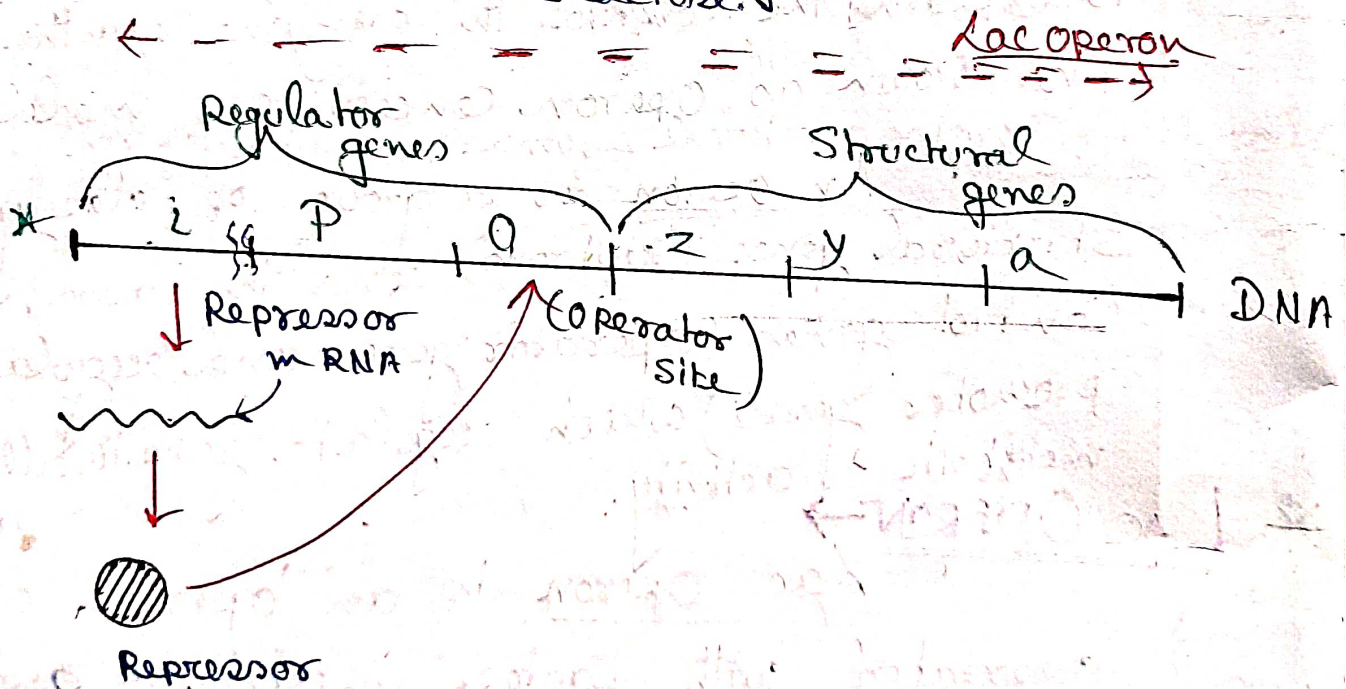 Lac operon
Regulator
genes
Structural
genes
i
P
O
z
y
a
DNA
Repressor
mRNA
(operator
site)
Repressor